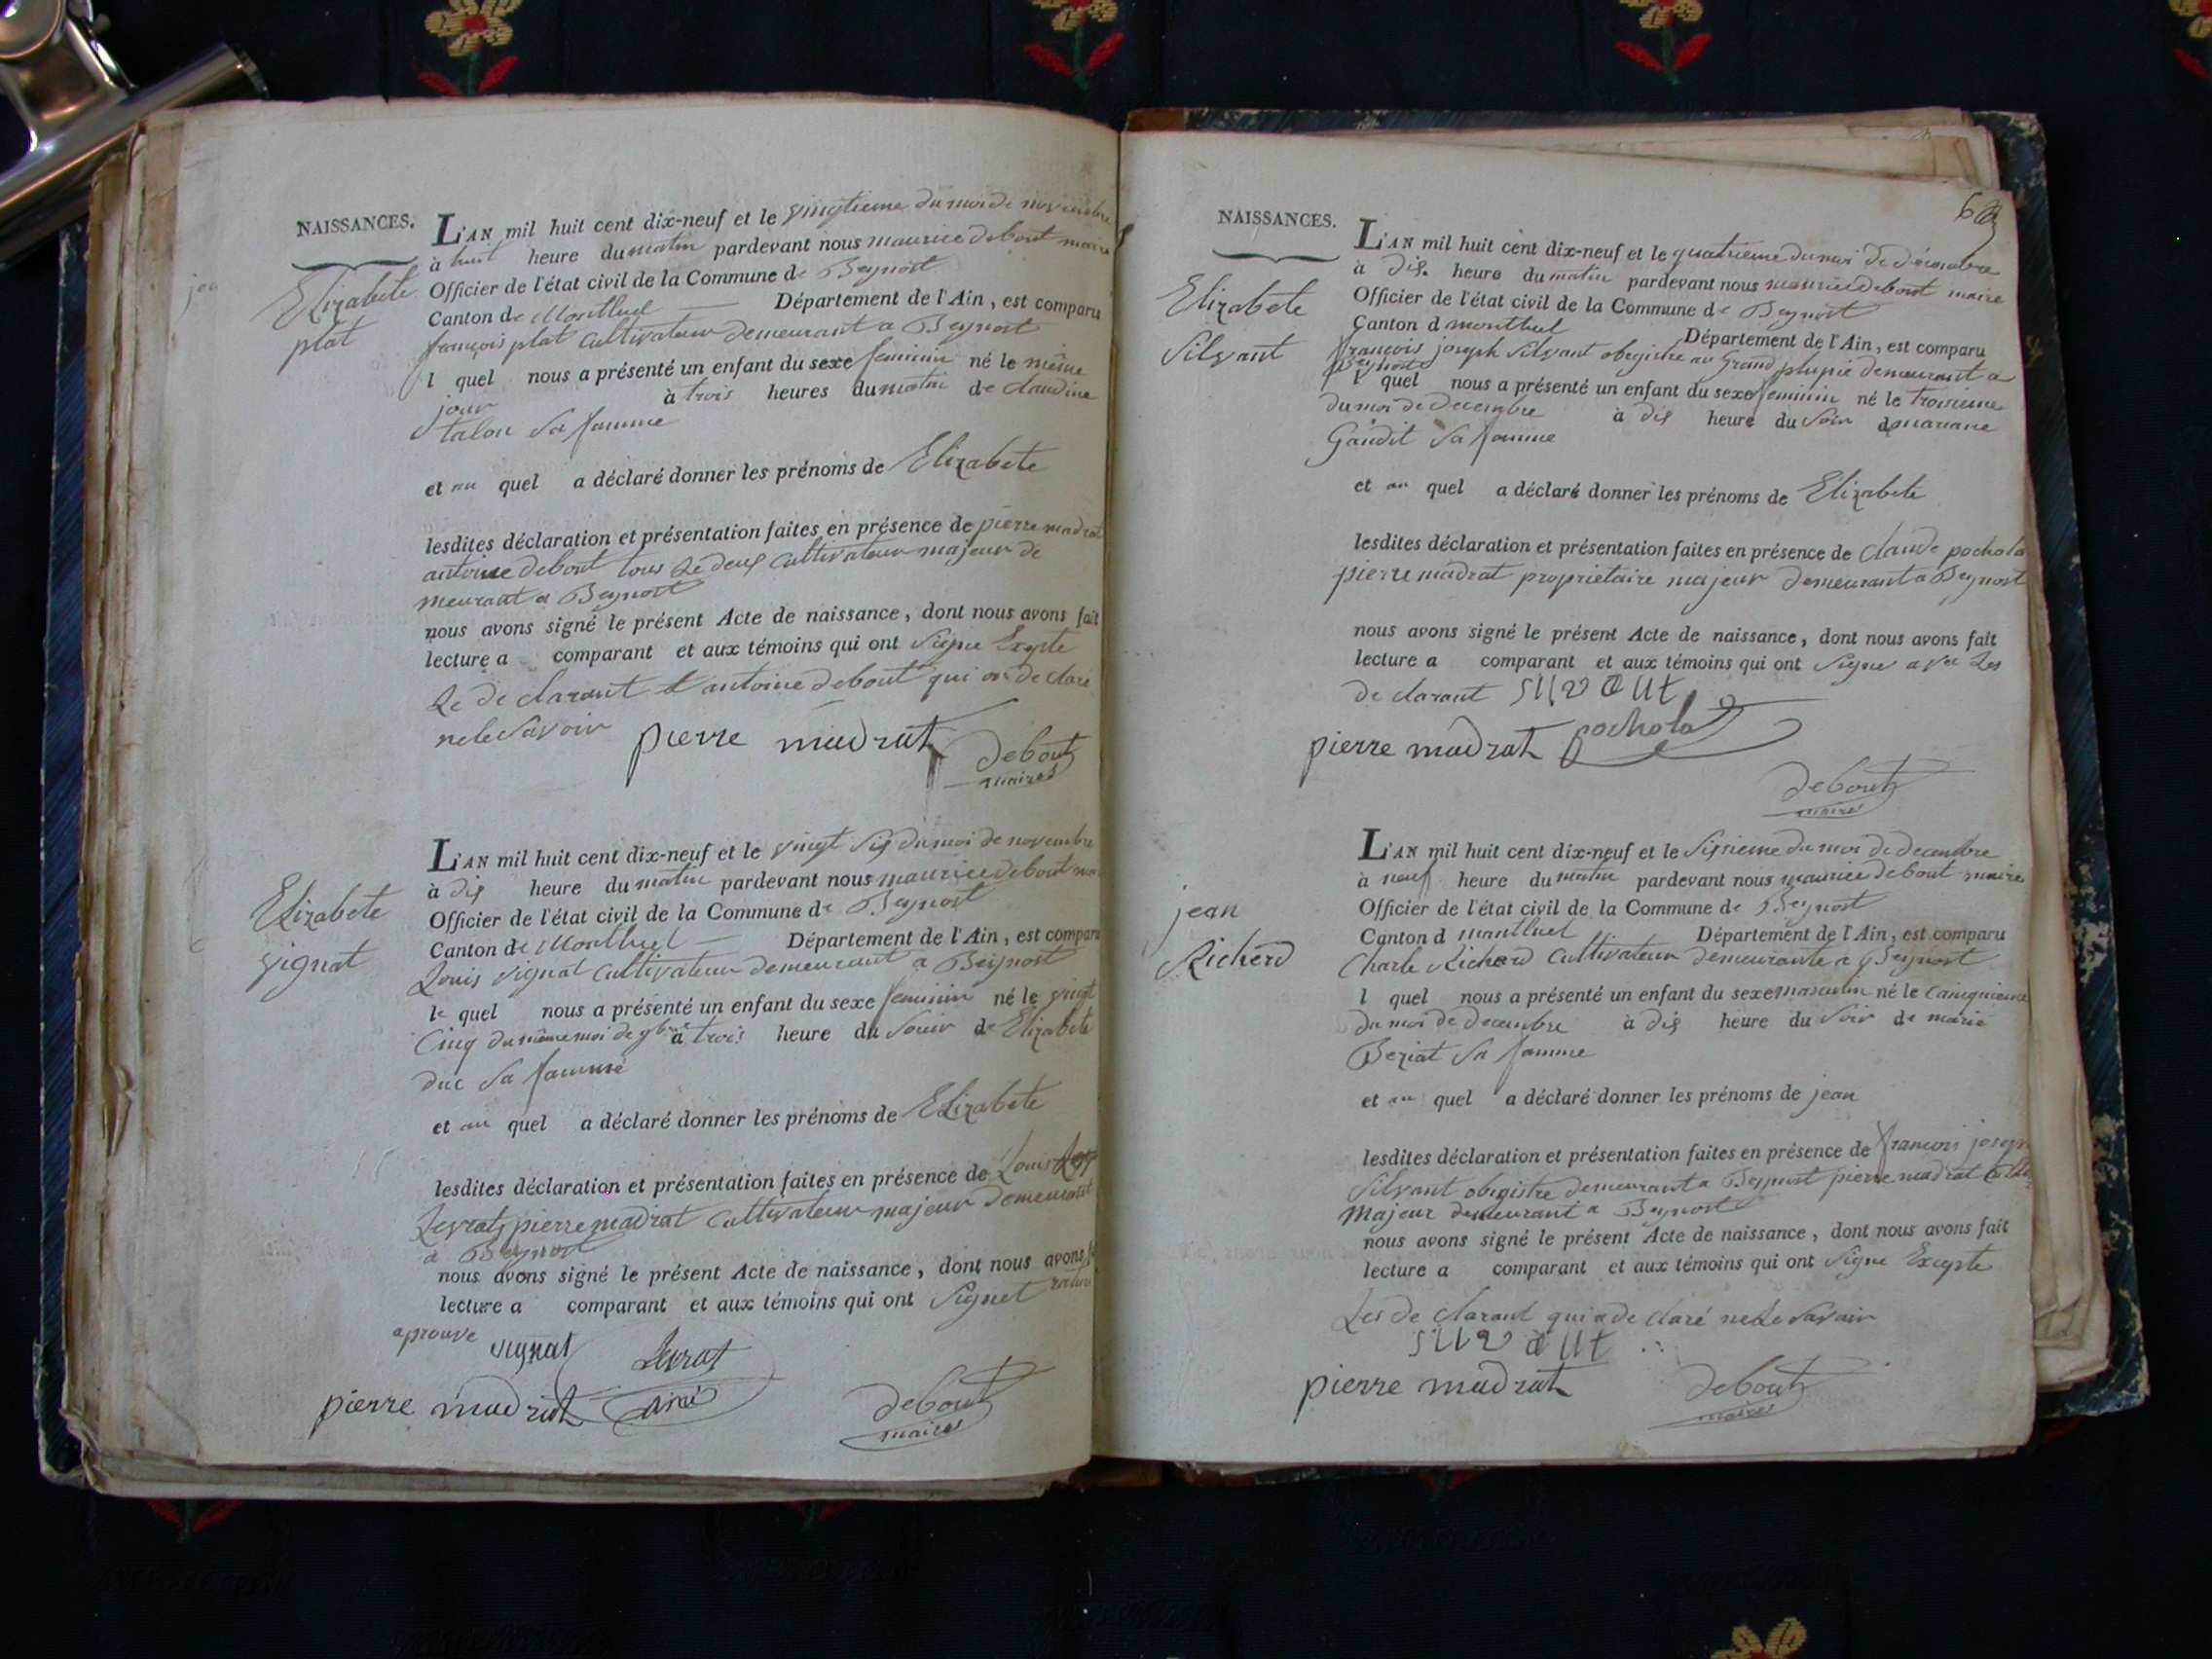 NAISSANCES.
Elizabete
plat
L'AN mil huit cent dix-neuf et le vingtieme du moi de novembre
à huit heure du matin pardevant nous maurice debout maire
Officier de l'état civil de la Commune de Beynost
Canton de Montluel Département de l'Ain, est comparu
françois plat cultivateur demeurant a Beynost
l quel nous a présenté un enfant du sexe feminin né le même
jour à trois heures du matin de claudine
talon sa famme
et au quel a déclaré donner les prénoms de Elizabete
lesdites déclaration et présentation faites en présence de pierre madrat
antoine debout tous de deux cultivateur majeur de
meurant a Beynost
nous avons signé le présent Acte de naissance, dont nous avons fait
lecture a comparant et aux témoins qui ont signe Exepte
Le de clarant et antoine debout qui on de claré
nele savoir
pierre madrat
debout
maire
Elizabete
vignat
L'AN mil huit cent dix-neuf et le vingt six du moi de novembre
à dix heure du matin pardevant nous maurice debout
Officier de l'état civil de la Commune de Beynost
Canton de Montluel Département de l'Ain, est comparu
Louis vignat cultivateur demeurant a Beynost
le quel nous a présenté un enfant du sexe feminin né le vingt
Cinq du même moi de 9bre à trois heure du souir de Elizabete
duc sa famme
et au quel a déclaré donner les prénoms de Elizabete
lesdites déclaration et présentation faites en présence de Louis
Levrat pierre madrat cultivateur majeur demeurant
a Beynost
nous avons signé le présent Acte de naissance, dont nous avons
lecture a comparant et aux témoins qui ont signet
aprouve
vignat
Levrat
ainé
pierre madrat
debout
maire
NAISSANCES.
Elizabete
Silvant
L'AN mil huit cent dix-neuf et le quatrieme du moi de décembre
à dix heure du matin pardevant nous maurice debout maire
Officier de l'état civil de la Commune de Beynost
Canton d montluel Département de l'Ain, est comparu
françois joseph Silvant obegiste au Grand demeurant a
Beynost
l quel nous a présenté un enfant du sexe feminin né le troisieme
du moi de decembre à dix heure du soir de mariane
Gaudit sa famme
et au quel a déclaré donner les prénoms de Elizabete
lesdites déclaration et présentation faites en présence de claude pochola
pierre madrat proprietaire majeur demeurant a Beynost
nous avons signé le présent Acte de naissance, dont nous avons fait
lecture a comparant et aux témoins qui ont signe avec Les
de clarant silvant
pierre madrat pochola
debout
maire
jean
Richerd
L'AN mil huit cent dix-neuf et le sixieme du moi de decembre
à neuf heure du matin pardevant nous maurice debout maire
Officier de l'état civil de la Commune de Beynost
Canton d montluel Département de l'Ain, est comparu
Charle Richerd cultivateur demeurante a Beynost
l quel nous a présenté un enfant du sexe masculin né le cainquieme
du moi de decembre à dix heure du soir de marie
Beriat sa famme
et au quel a déclaré donner les prénoms de jean
lesdites déclaration et présentation faites en présence de francois joseph
Silvant obegistre demeurant a Beynost pierre madrat
majeur demeurant a Beynost
nous avons signé le présent Acte de naissance, dont nous avons fait
lecture a comparant et aux témoins qui ont signe Excepte
Les de clarant qui a de claré nele savoir
silvant
pierre madrat
debout
maire